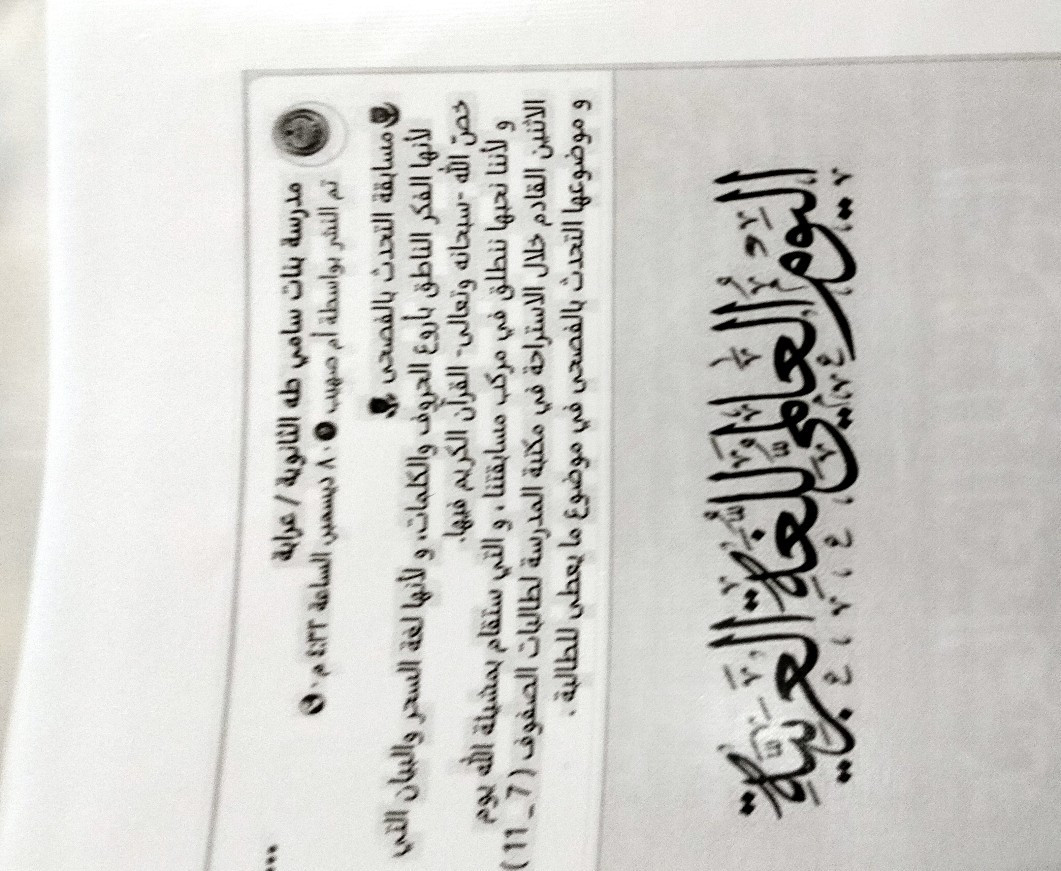 ...
مدرسة بنات سامي طه الثانوية / عرابة
تم النشر بواسطة أم صهيب · ٨ ديسمبر الساعة ٤:٣٣ م ·
مسابقة التحدث بالفصحى
لأنها الفكر الناطق بأروع الحروف والكلمات، و لأنها لغة السحر والبيان التي
خصّ الله -سبحانه وتعالى- القرآن الكريم فيها.
و لأننا نحبها ننطلق في مركب مسابقتنا ، و التي ستقام بمشيئة الله يوم
الاثنين القادم خلال الاستراحة في مكتبة المدرسة لطالبات الصفوف ( 7 _ 11 )
و موضوعها التحدث بالفصحى في موضوع ما يعطى للطالبة .
اليوم العالمي للغة العربية